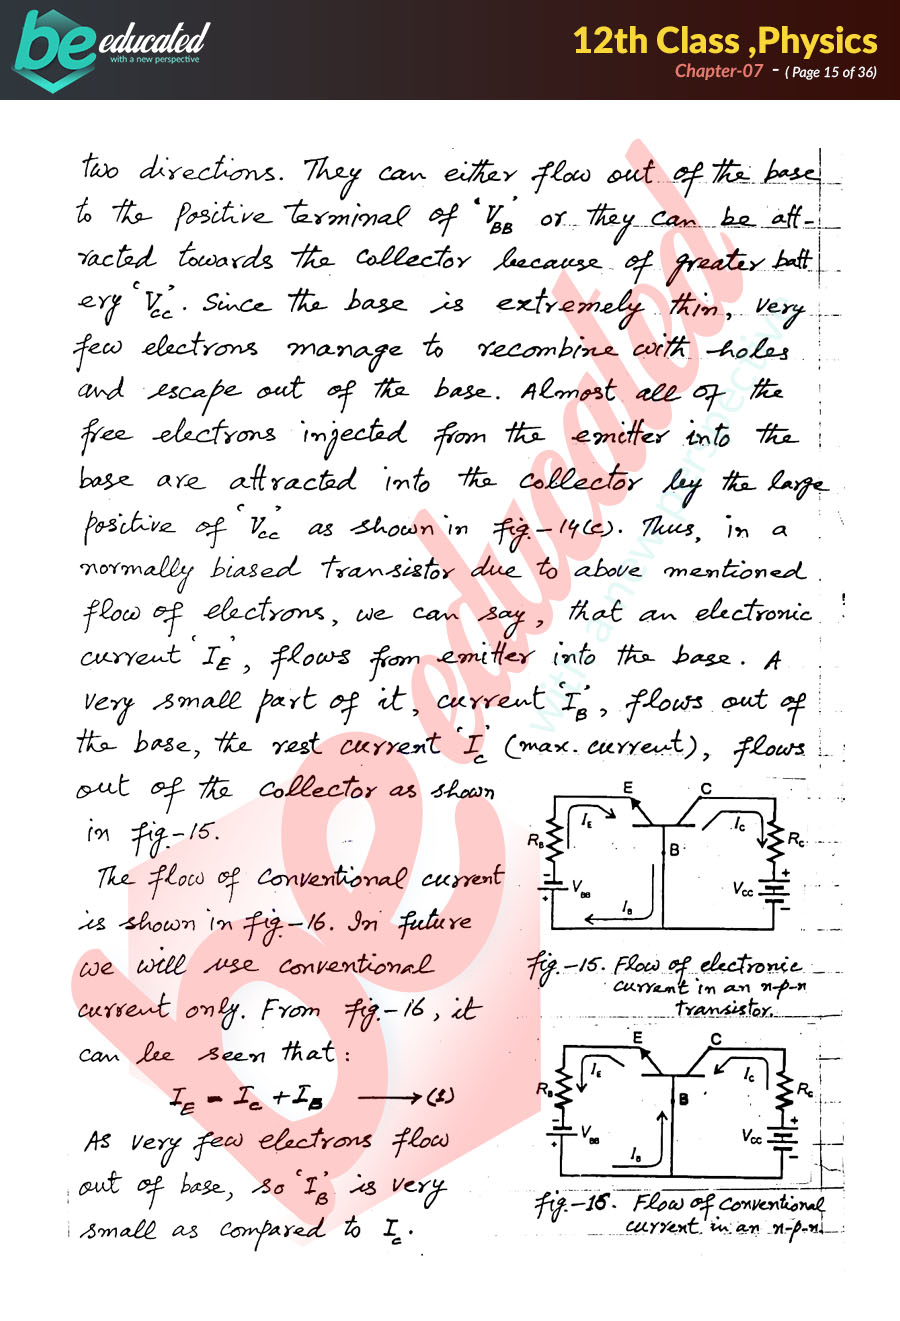 be educated
with a new perspective
12th Class ,Physics
Chapter-07 - ( Page 15 of 36)
two directions. They can either flow out of the base
to the positive terminal of 'VBB' or they can be att-
racted towards the collector because of greater batt
ery 'Vcc'. Since the base is extremely thin, very
few electrons manage to recombine with holes
and escape out of the base. Almost all of the
free electrons injected from the emitter into the
base are attracted into the collector by the large
positive of 'Vcc' as shown in fig.-14(c). Thus, in a
normally biased transistor due to above mentioned
flow of electrons, we can say, that an electronic
current 'IE', flows from emitter into the base. A
very small part of it, current 'IB', flows out of
the base, the rest current 'Ic' (max. current), flows
out of the collector as shown
in fig-15.
The flow of conventional current
is shown in fig-16. In future
we will use conventional
current only. From fig-16, it
can be seen that:
IE = Ic + IB ⟶ (1)
As very few electrons flow
out of base, so 'IB' is very
small as compared to Ic.
E C
IE IC
RB B RC
- +
VBB VCC
+ -
IB
fig.-15. Flow of electronic
current in an n-p-n
transistor.
E C
IE IC
RB B RC
- +
VBB VCC
+ -
IB
fig.-16. Flow of conventional
current in an n-p-n
be educated
with a new perspective